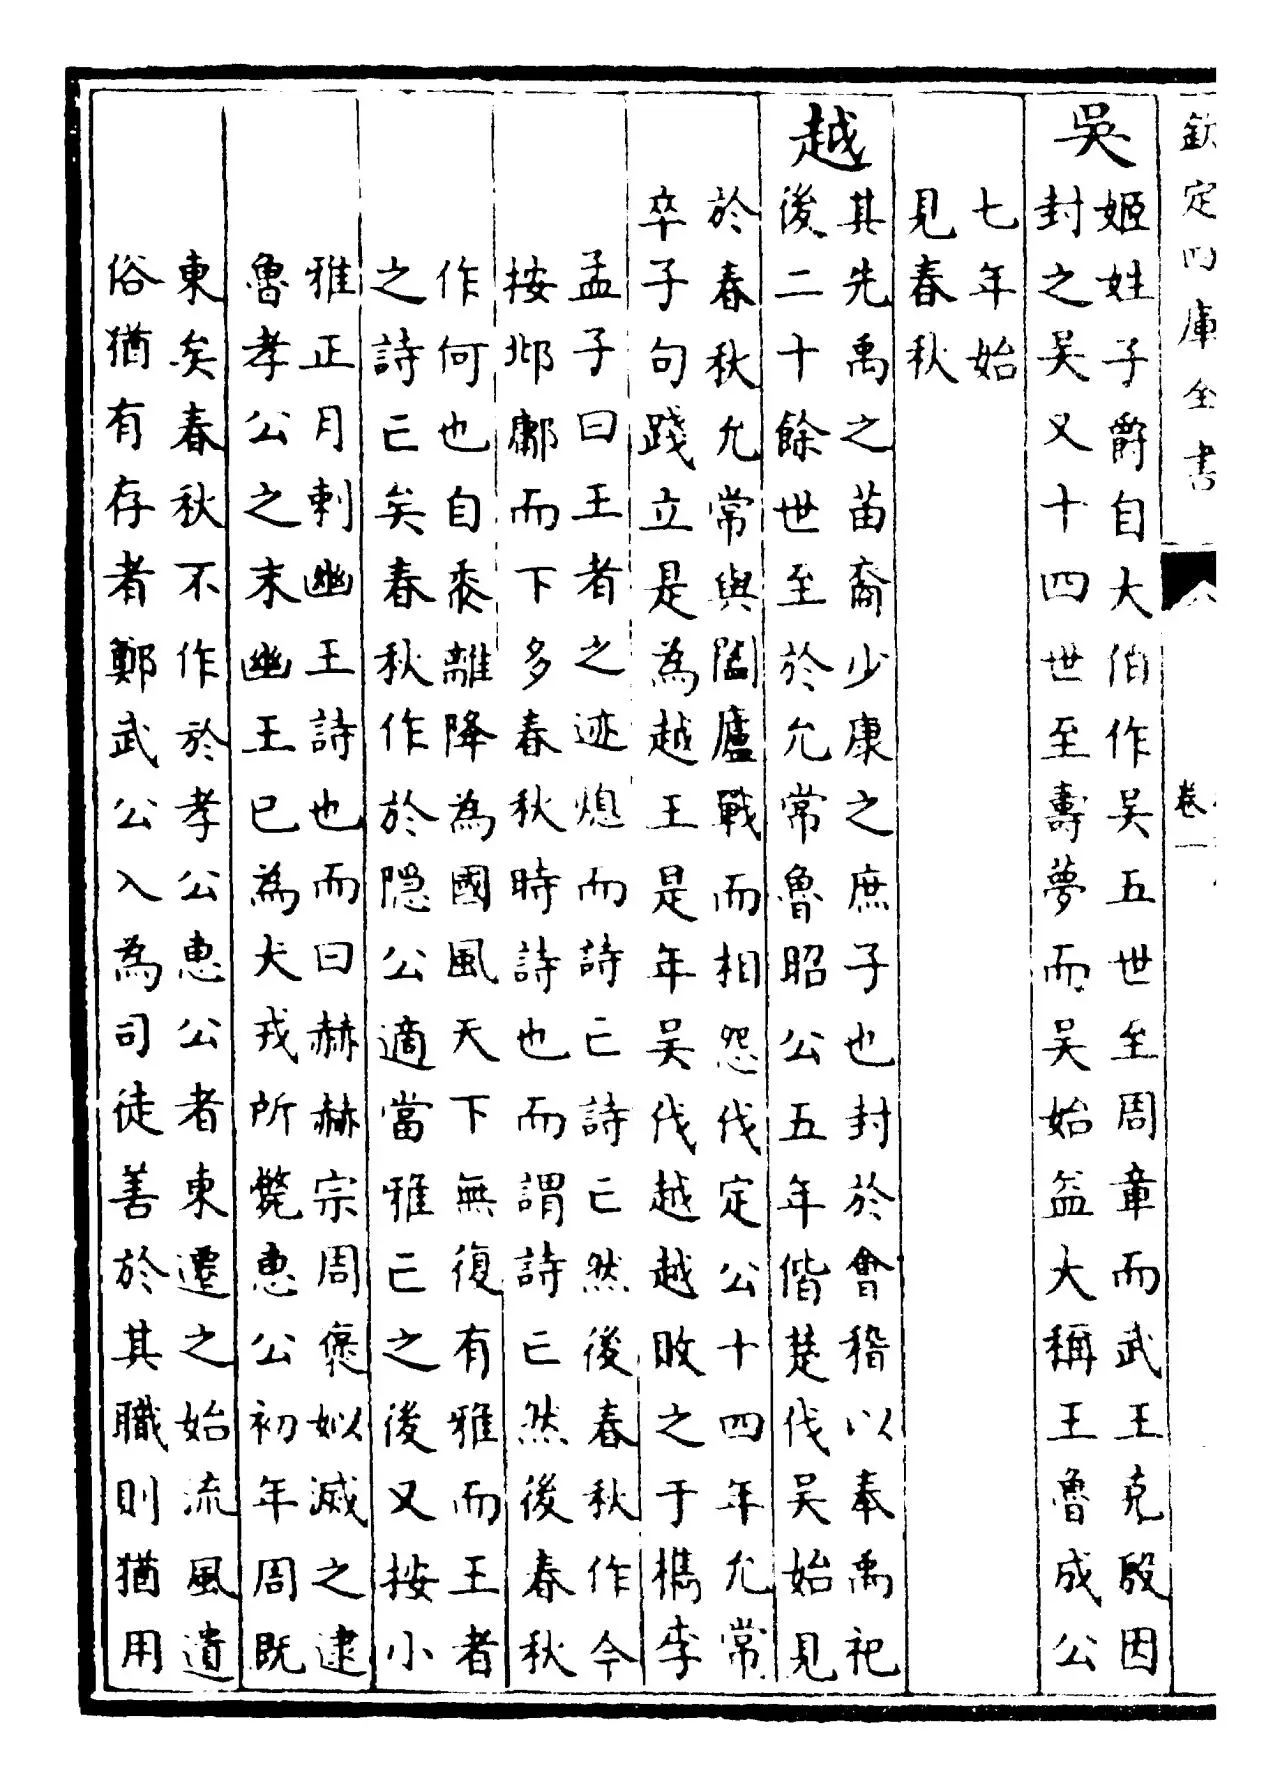 欽定四庫全書
卷一
吳
姬姓子爵自大伯作吴五世至周章而武王克殷因
封之吴又十四世至壽夢而吴始益大稱王魯成公
七年始
見春秋
越
其先禹之苗裔少康之庶子也封於㑹稽以奉禹祀
後二十餘世至於允常魯昭公五年偕楚伐吴始見
於春秋允常與闔廬戰而相怨伐定公十四年允常
卒子句踐立是為越王是年吴伐越越敗之于檇李
孟子曰王者之迹熄而詩亡詩亡然後春秋作今
按邶鄘而下多春秋時詩也而謂詩亡然後春秋
作何也自黍離降為國風天下無復有雅而王者
之詩亡矣春秋作於隠公適當雅亡之後又按小
雅正月刺幽王詩也而曰赫赫宗周褒姒滅之逮
魯孝公之末幽王已為犬戎所斃惠公初年周既
東矣春秋不作於孝公惠公者東遷之始流風遺
俗猶有存者鄭武公入為司徒善於其職則猶用